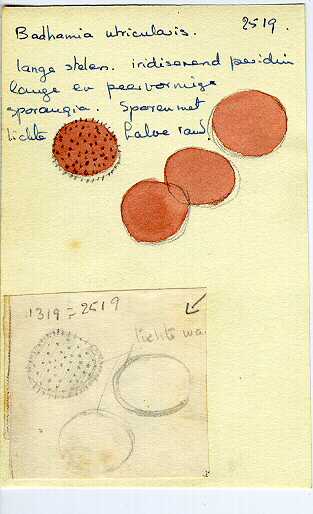 Badhamia utricularis. 2519.
lange stelen. iridiserend peridium
lange en peervormige
sporangia. Sporen met
lichte halve rand!
1319 = 2519
lichte wa